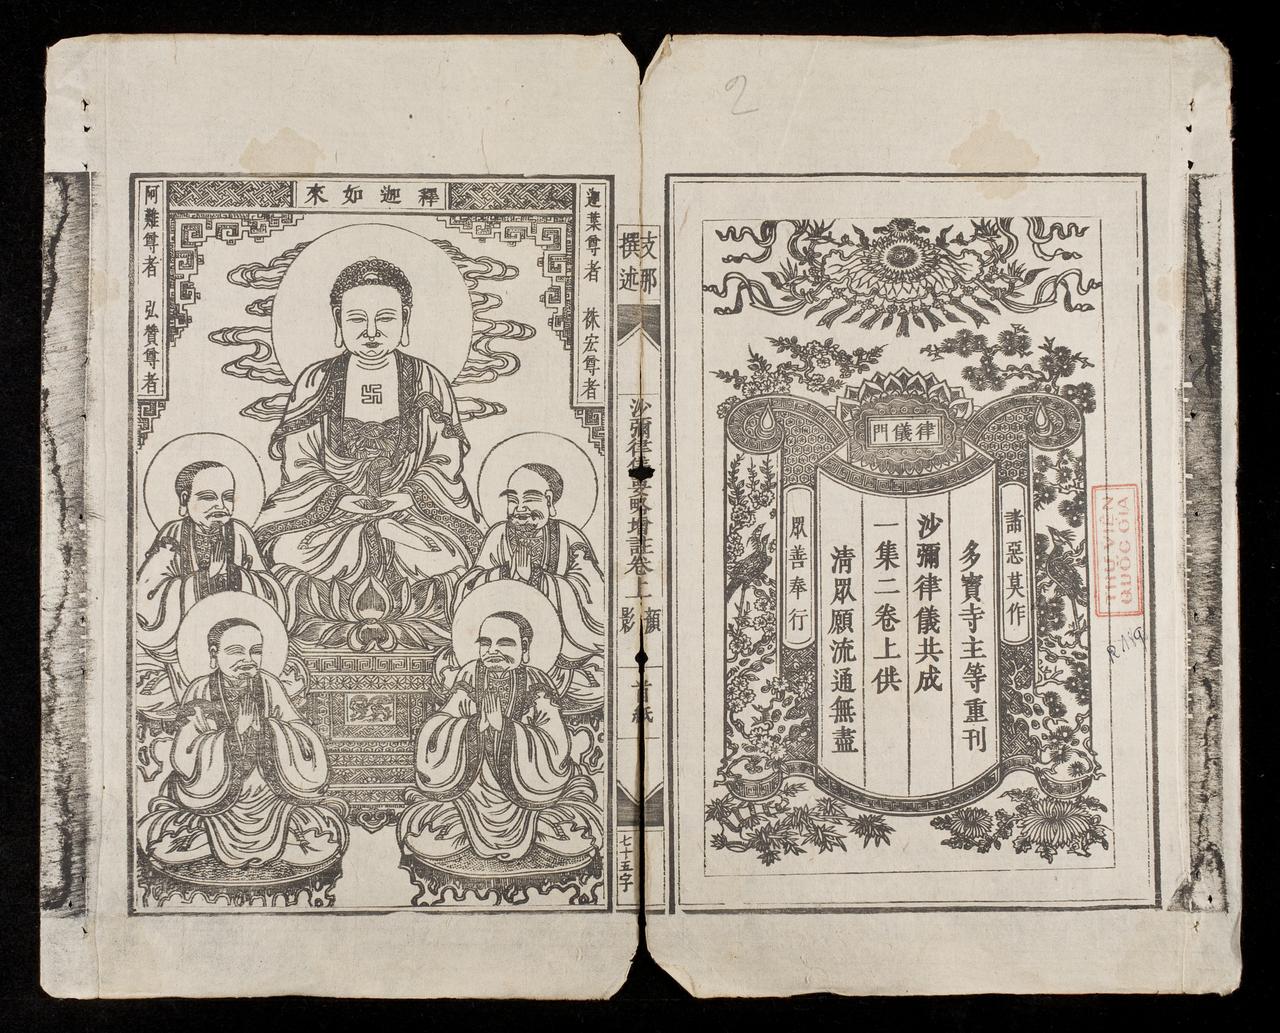 2
律儀門
諸惡莫作
多寶寺主等重刊
沙彌律儀共成
一集二卷上供
清眾願流通無盡
眾善奉行
THƯ VIỆN
QUỐC GIA
支那
撰述
沙彌律儀要略增註卷上
顏
影
首紙
七十五字
釋迦如來
迦葉尊者 袾宏尊者
阿難尊者 弘贊尊者